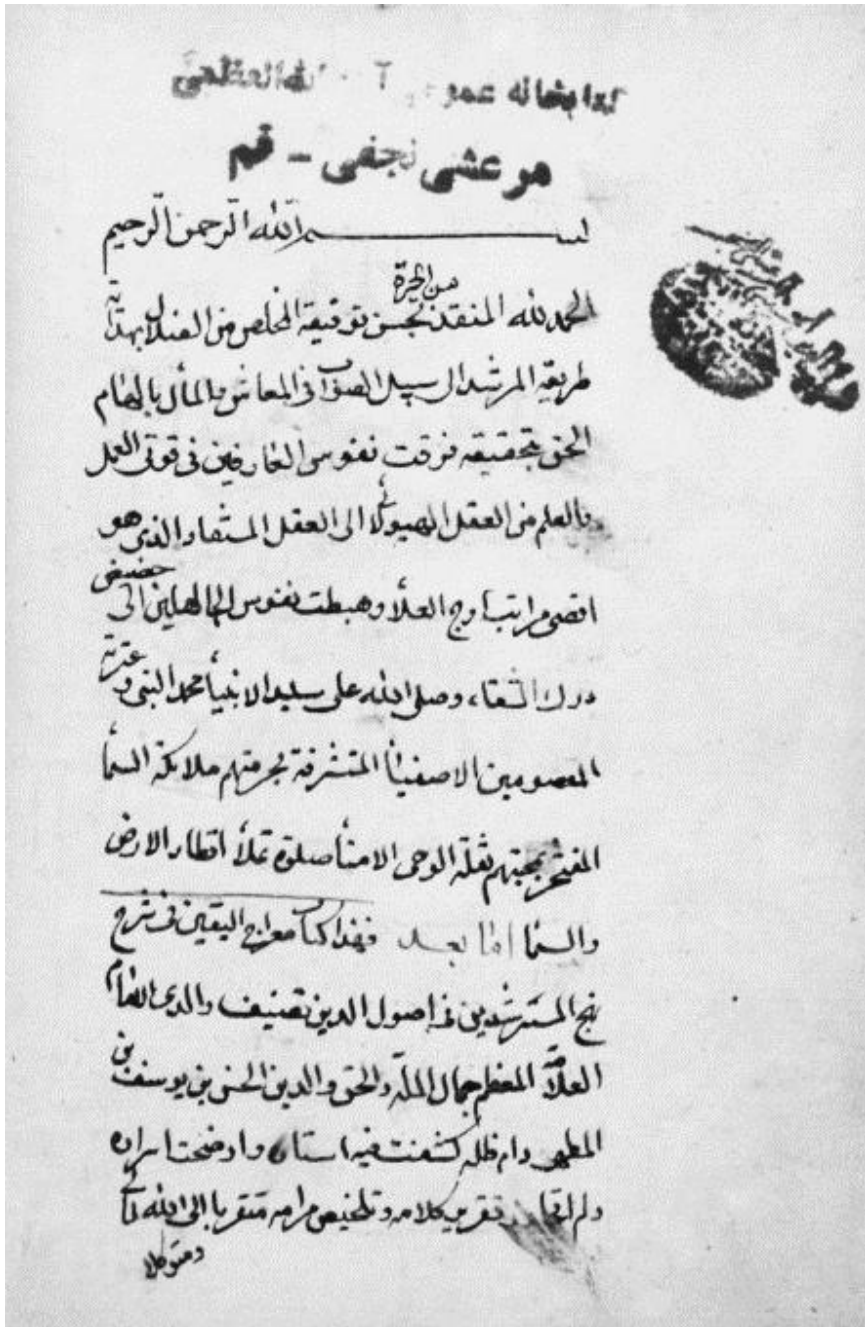 كتابخانه عمومى آيت الله العظمى
مرعشى نجفى - قم
بسم الله الرحمن الرحيم
الحمد لله المنقذ من الحيرة بحسن توفيقه المخلص من الضلال بهداية
طريقه المرشد الى سبيل الصواب فى المعاش والمآل بالهام
الحق بتحقيقه فرقت نفوس العارفين فى قوتى العمل
والعلم من العقل الهيولانى الى العقل المستفاد الذى هو
اقصى مراتب اوج العلاء وهبطت نفوس الجاهلين الى حضيض
درك الشقاء، وصلى الله على سيد الانبياء محمد النبى وعترته
المعصومين الاصفياء المتشرفة بحرمتهم ملائكة السماء
المفتخر بمحبتهم نقلة الوحى الامناء صلوة تملأ اقطار الارض
والسماء اما بعد فهذا كتاب معراج اليقين فى شرح
نهج المسترشدين فى اصول الدين تصنيف والدى الامام
العلامة المعظم جمال الملة والحق والدين الحسن بن يوسف بن
المطهر دام ظله كشفت فيه استاره واوضحت اسراره
ولم اتجاوز تقرير كلامه وتلخيص مرامه متقربا الى الله تعالى
ومتوكلا